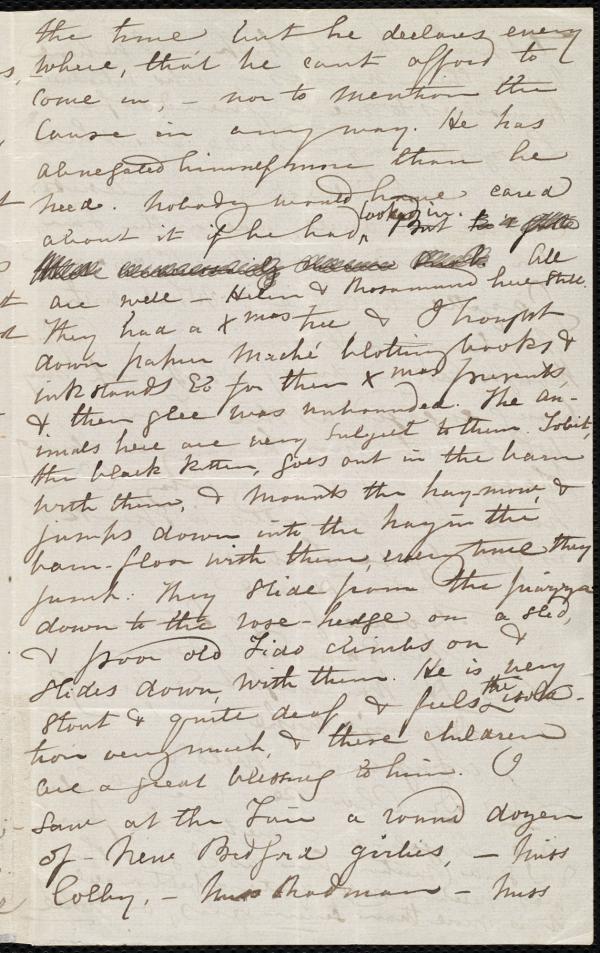 the time but he declares every
where, that he can't afford to
come in, - nor to mention the
Cause in any way. He has
abnegated himself more than he
need. Nobody would have cared
about it if he had looked in. But
All
are well - Helen & Rosamund here still.
They had a Xmas tree & I brought
down papier Maché blotting books &
inkstands &c for their Xmas presents,
& their glee was unbounded. The an-
imals here are very subject to them. Tobit,
the black kitten, goes out in the barn
with them, & mounts the hay-mow, &
jumps down into the hay in the
barn-floor with them, every time they
jump. They slide from the piazza
down to the rose-hedge on a sled,
& poor old Fido climbs on &
slides down, with them. He is very
stout & quite deaf & feels the isola-
tion very much, & these children
are a great blessing to him. I
saw at the Fair a round dozen
of New Bedford girlies, - Miss
Colby, - Miss Rodman - Miss